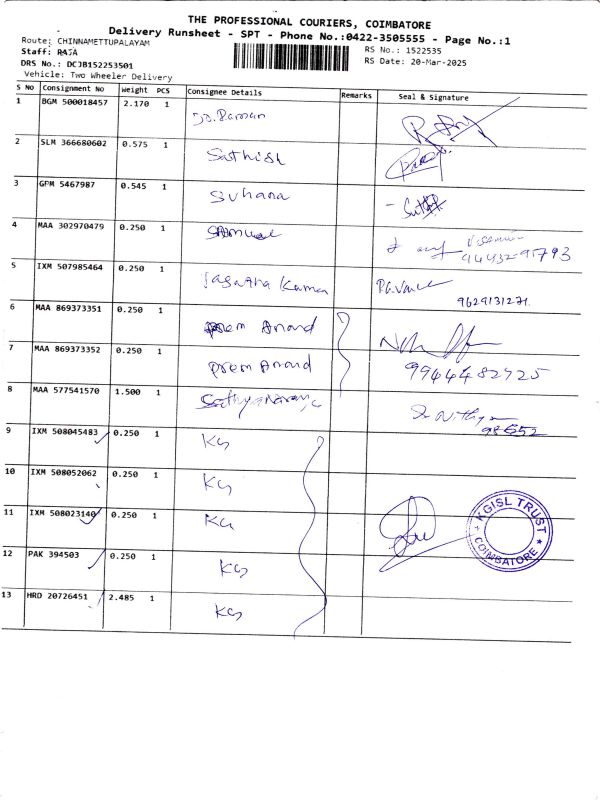 THE PROFESSIONAL COURIERS, COIMBATORE
Delivery Runsheet - SPT - Phone No.:0422-3505555 - Page No.:1
Route: CHINNAMETTUPALAYAM
RS No.: 1522535
Staff: RAJA
RS Date: 20-Mar-2025
DRS No.: DCJB152253501
Vehicle: Two Wheeler Delivery
S No Consignment No Weight PCS Consignee Details Remarks Seal & Signature
1 BGM 500018457 2.170 1
2 SLM 366680602 0.575 1 Sathish
3 GPM 5467987 0.545 1 Suhana
4 MAA 302970479 0.250 1 Samuel
94432 91793
5 IXM 507985464 0.250 1 Kumar
9629131271
6 MAA 869373351 0.250 1 prem Anand
7 MAA 869373352 0.250 1 prem Anand 9944482725
8 MAA 577541570 1.500 1
9 IXM 508045483 0.250 1 KG
10 IXM 508052062 0.250 1 KG
11 IXM 508023140 0.250 1 KG
KGISL TRUST
COIMBATORE
12 PAK 394503 0.250 1 KG
13 HRD 20726451 2.485 1 KG